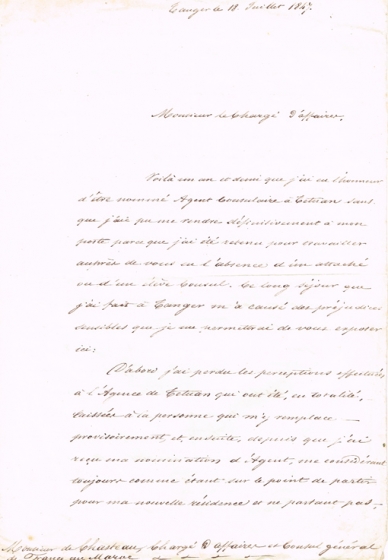 Tanger le 18 Juillet 184
Monsieur le Chargé D'affaires,
Voilà un an et demi que j'ai eu l'honneur
d'être nommé Agent Consulaire à Tétuan sans
que j'aie pu me rendre définitivement à mon
poste parce que j'ai été retenu pour travailler
auprès de vous en l'absence d'un attaché
ou d'un élève Consul. Ce long séjour que
j'ai fait à Tanger m'a causé des préjudices
sensibles que je me permettrai de vous exposer
ici:
D'abord j'ai perdu les perceptions effectuées
à l'Agence de Tétuan qui ont été, en totalité,
laissées à la personne qui m'y remplace
provisoirement et, ensuite, depuis que j'ai
reçu ma nomination d'Agent, me considérant
toujours comme étant sur le point de partir
pour ma nouvelle résidence et ne partant pas
Monsieur de Chasteau, Chargé D'affaires et Consul général
de France au Maroc